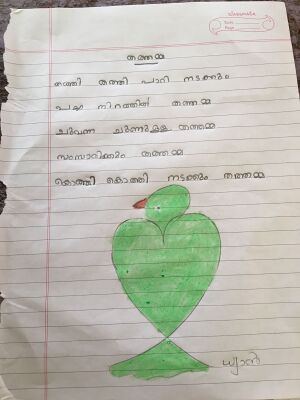 classmate
Date
Page
തത്തമ്മ
തത്തി തത്തി പാറി നടക്കും
പച്ച നിറത്തിൻ തത്തമ്മ
ചുവന്ന ചുണ്ടുള്ള തത്തമ്മ
സംസാരിക്കും തത്തമ്മ
കൊത്തി കൊത്തി നടക്കും തത്തമ്മ
ധ്യാൻ